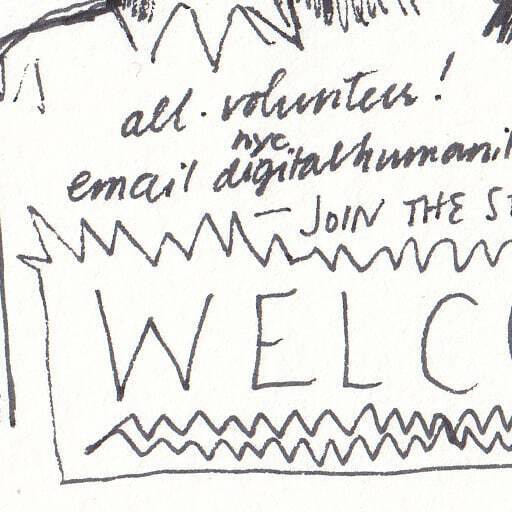 all. volunteer!
nyc
email digitalhumani
— JOIN THE S
WELC